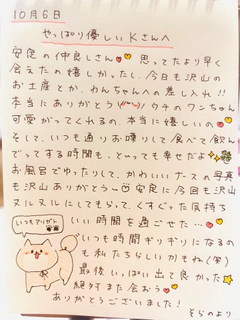 10月6日
やっぱり優しいKさんへ
安定の仲良しさん 思ってたより早く
会えたの嬉しかったし、今日も沢山の
お土産とか、わんちゃんへの差し入れ!!
本当にありがとう(//∇//)ウチのワンちゃん
可愛がってくれるの、本当に嬉しいの
そして、いつも通りお喋りして食べて飲ん
でってする時間も、とーっても幸せだよ
お風呂でゆったりして、かわいいナースの写真
も沢山ありがとう 安定に今回も沢山
ヌルヌルにしてもらって、くすぐった気持ち
いい時間を過ごせた…
いつもアリガトー
いつも時間ギリギリになるの
も私たちらしいかもね(笑)
最後いっぱい出て良かった
絶対また会おう
ありがとうございました!
そらのより